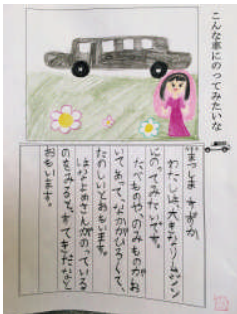 こんな車にのってみたいな
まつしま すずか
わたしは、大きなリムジン
にのってみたいです。
たべものや、のみものがお
いてあって、なかがひろくて、
たのしいとおもいます。
はなよめさんがのっている
のをみると、すてきだなと
おもいます。